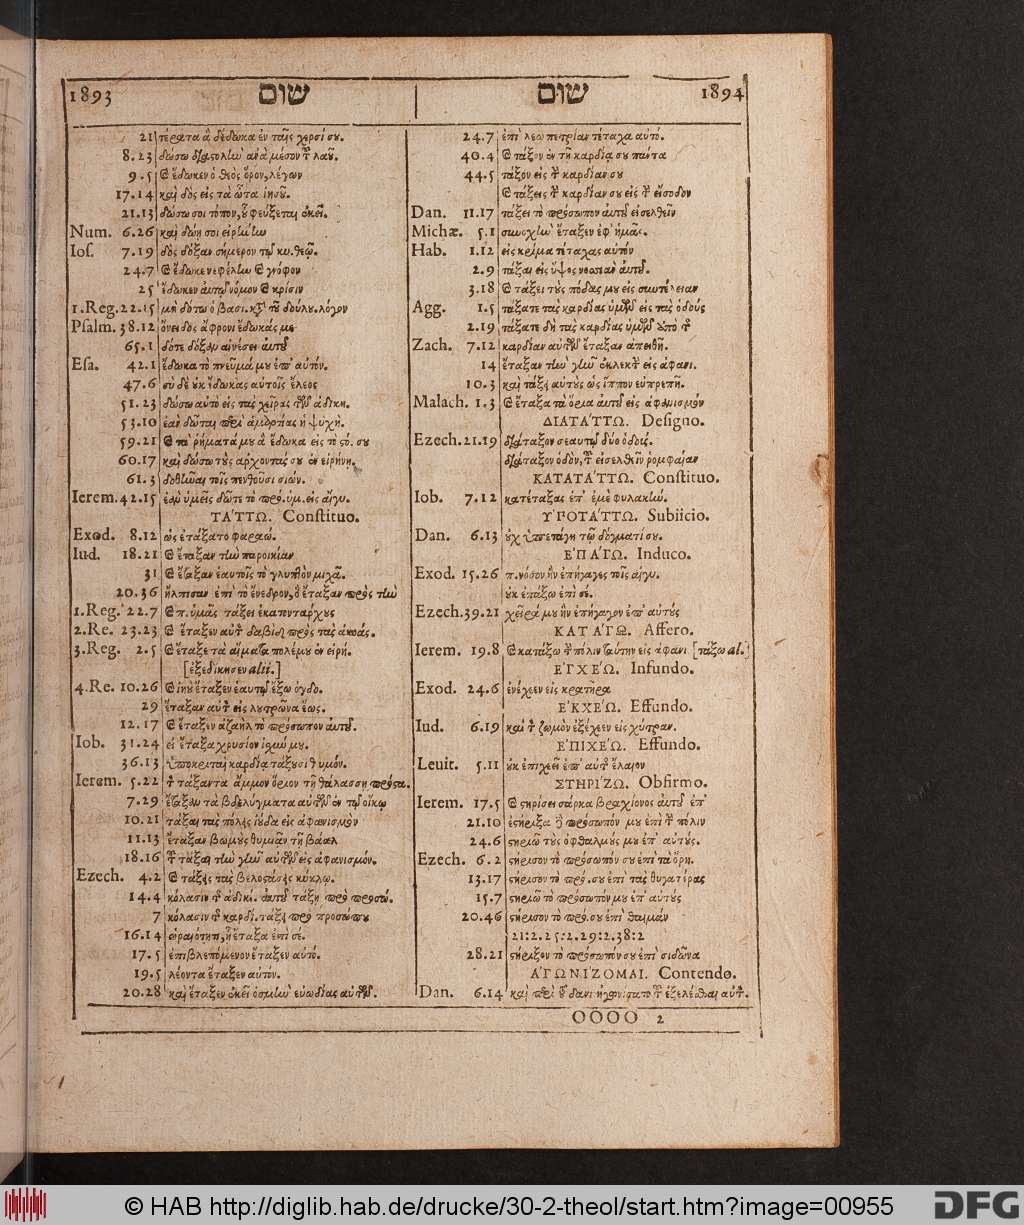 1893 שום שום 1894
21 τέρατα ἃ δέδωκα ἐν ταῖς χερσί σου.
8.23 δώσω διαστολὴν ἀνὰ μέσον τοῦ λαοῦ.
9.5 καὶ ἔδωκεν ὁ θεὸς ὅρον, λέγων
17.14 καὶ δὸς εἰς τὰ ὦτα ἰησοῦ.
21.13 δώσω σοι τόπον, οὗ φεύξεται ἐκεῖ.
Num. 6.26 καὶ δώη σοι εἰρήνην
Ios. 7.19 δὸς δόξαν σήμερον τῷ κυ. θεῷ.
24.7 καὶ ἔδωκε νεφέλην καὶ γνόφον
25 ἔδωκεν αὐτῷ νόμον καὶ κρίσιν
1.Reg.22.15 μὴ δότω ὁ βασι. κατὰ τοῦ δούλου. λόγον
Psalm. 38.12 ὄνειδος ἄφρονι ἔδωκάς με
65.1 δότε δόξαν αἰνέσει αὐτοῦ
Esa. 42.1 ἔδωκα τὸ πνεῦμά μου ἐπ' αὐτόν.
47.6 σὺ δὲ οὐκ ἔδωκας αὐτοῖς ἔλεος
51.23 δώσω αὐτὸ εἰς τὰς χεῖρας τῶν ἀδικη.
53.10 ἐὰν δῶται περὶ ἁμαρτίας ἡ ψυχὴ.
59.21 καὶ τὰ ῥήματά μου ἃ ἔδωκα εἰς τὸ στό. σου
60.17 καὶ δώσω τοὺς ἄρχοντάς σου ἐν εἰρήνη.
61.3 δοθῆναι τοῖς πενθοῦσι σιών.
Ierem.42.15 ἐὰν ὑμεῖς δῶτε τὸ πρό. ὑμ. εἰς αἴγυ.
ΤΑ'ΤΤΩ. Constituo.
Exod. 8.12 ὡς ἐτάξατο φαραώ.
Iud. 18.21 καὶ ἔταξαν τὴν παροικίαν
31 καὶ ἔταξαν ἑαυτοῖς τὸ γλυπτὸν μιχᾶ.
20.36 ἤλπισαν ἐπὶ τὸ ἔνεδρον, ὃ ἔταξαν πρὸς τὴν
1.Reg. 22.7 καὶ π. ὑμᾶς τάξει ἑκατοντάρχους
2.Re. 23.23 καὶ ἔταξεν αὐτὸν δαβὶδ πρὸς τὰς ἀκοάς.
3.Reg. 2.5 καὶ ἔταξε τὰ αἵματα πολέμου ἐν εἰρή.
[ἐξεδίκησεν alii.]
4.Re. 10.26 καὶ ἰηοὺ ἔταξεν ἑαυτῷ ἔξω ὀγδο.
29 ἔταξαν αὐτὸν εἰς λυτρῶνα ἕως.
12.17 καὶ ἔταξεν ἀζαὴλ τὸ πρόσωπον αὐτοῦ.
Iob. 31.24 εἰ ἔταξα χρυσίον ἰσχύν μου.
36.13 ὑποκριταὶ καρδίᾳ τάξουσι θυμόν.
Ierem. 5.22 τὸν τάξαντα ἄμμον ὅριον τῇ θαλάσσῃ πρόστα.
7.29 ἔταξαν τὰ βδελύγματα αὐτῶν ἐν τῷ οἴκῳ
10.21 τάξαι τὰς πόλεις ἰούδα εἰς ἀφανισμὸν
11.13 ἔταξαν βωμοὺς θυμιᾶν τῇ βάαλ
18.16 τοῦ τάξαι τὴν γῆν αὐτῶν εἰς ἀφανισμόν.
Ezech. 4.2 καὶ τάξεις τὰς βελοστάσεις κύκλῳ.
14.4 κόλασιν τῆς ἀδικί. αὐτοῦ τάξη πρὸ προσώ.
7 κόλασιν τῆς καρδί. τάξη πρὸ προσώπου
16.14 ὡραιότητι, ᾗ ἔταξα ἐπὶ σέ.
17.5 ἐπιβλεπόμενον ἔταξεν αὐτό.
19.5 λέοντα ἔταξεν αὐτόν.
20.28 καὶ ἔταξεν ἐκεῖ ὀσμὴν εὐωδίας αὐτῶν.
24.7 ἐπὶ λεωπετρίαν τέταχα αὐτό.
40.4 καὶ τάξον ἐν τῇ καρδίᾳ σου πάντα
44.5 τάξον εἰς τὴν καρδίαν σου
καὶ τάξεις τὴν καρδίαν σου εἰς τὴν εἴσοδον
Dan. 11.17 τάξει τὸ πρόσωπον αὐτοῦ εἰσελθεῖν
Michæ. 5.1 συνοχὴν ἔταξεν ἐφ' ἡμᾶς.
Hab. 1.12 εἰς κρίμα τέταχας αὐτόν
2.9 τάξαι εἰς ὕψος νοσσιὰν αὐτοῦ.
3.18 καὶ τάξει τοὺς πόδας μου εἰς συντέλειαν
Agg. 1.5 τάξατε τὰς καρδίας ὑμῶν εἰς τὰς ὁδοὺς
2.19 τάξατε δὴ τὰς καρδίας ὑμῶν ἀπὸ τῆς
Zach. 7.12 καρδίαν αὐτῶν ἔταξαν ἀπειθῆ.
14 ἔταξαν τὴν γῆν ἐκλεκτὴν εἰς ἀφανι.
10.3 καὶ τάξει αὐτοὺς ὡς ἵππον εὐπρεπῆ.
Malach. 1.3 καὶ ἔταξα τὰ ὅρια αὐτοῦ εἰς ἀφανισμόν
ΔΙΑΤΑ'ΤΤΩ. Designo.
Ezech.21.19 διάταξον σεαυτῷ δύο ὁδούς.
διάταξον ὁδὸν, τοῦ εἰσελθεῖν ῥομφαίαν
ΚΑΤΑΤΑ'ΤΤΩ. Constituo.
Iob. 7.12 κατέταξας ἐπ' ἐμὲ φυλακήν.
ΥΠΟΤΑ'ΤΤΩ. Subiicio.
Dan. 6.13 οὐχ ὑπετάγη τῷ δόγματί σου.
ΕΠΑ'ΓΩ. Induco.
Exod. 15.26 π. νόσον ἣν ἐπήγαγες τοῖς αἰγυ.
οὐκ ἐπάξω ἐπὶ σέ.
Ezech.39.21 χεῖρά μου ἣν ἐπήγαγον ἐπ' αὐτούς
ΚΑΤΑ'ΓΩ. Affero.
Ierem. 19.8 καὶ κατάξω τὴν πόλιν ταύτην εἰς ἀφανι [τάξω al.]
ΕΓΧΕ'Ω. Infundo.
Exod. 24.6 ἐνέχεεν εἰς κρατῆρα
ΕΚΧΕ'Ω. Effundo.
Iud. 6.19 καὶ τὸν ζωμὸν ἐξέχεεν εἰς χύτραν.
ΕΠΙΧΕ'Ω. Effundo.
Leuit. 5.11 οὐκ ἐπιχεεῖ ἐπ' αὐτὸ ἔλαιον
ΣΤΗΡΙ'ΖΩ. Obfirmo.
Ierem. 17.5 καὶ στηρίσει σάρκα βραχίονος αὐτοῦ ἐπ'
21.10 ἐστήριξα τὸ πρόσωπόν μου ἐπὶ τὴν πόλιν
24.6 στηριῶ τοὺς ὀφθαλμούς μου ἐπ' αὐτούς.
Ezech. 6.2 στήρισον τὸ πρόσωπόν σου ἐπὶ τὰ ὄρη.
13.17 στήρισον τὸ πρό. σου ἐπὶ τὰς θυγατέρας
15.7 στηριῶ τὸ πρόσωπόν μου ἐπ' αὐτούς
20.46 στήρισον τὸ πρό. σου ἐπὶ θαιμάν
21:2.25:2.29:2.38:2
28.21 στήριξον τὸ πρόσωπόν σου ἐπὶ σιδῶνα
ΑΓΩΝΙ'ΖΟΜΑΙ. Contendo.
Dan. 6.14 καὶ περὶ τοῦ δανι ἠγωνίσατο τοῦ ἐξελέσθαι αὐτόν.
OOOO 2
© HAB http://diglib.hab.de/drucke/30-2-theol/start.htm?image=00955 DFG